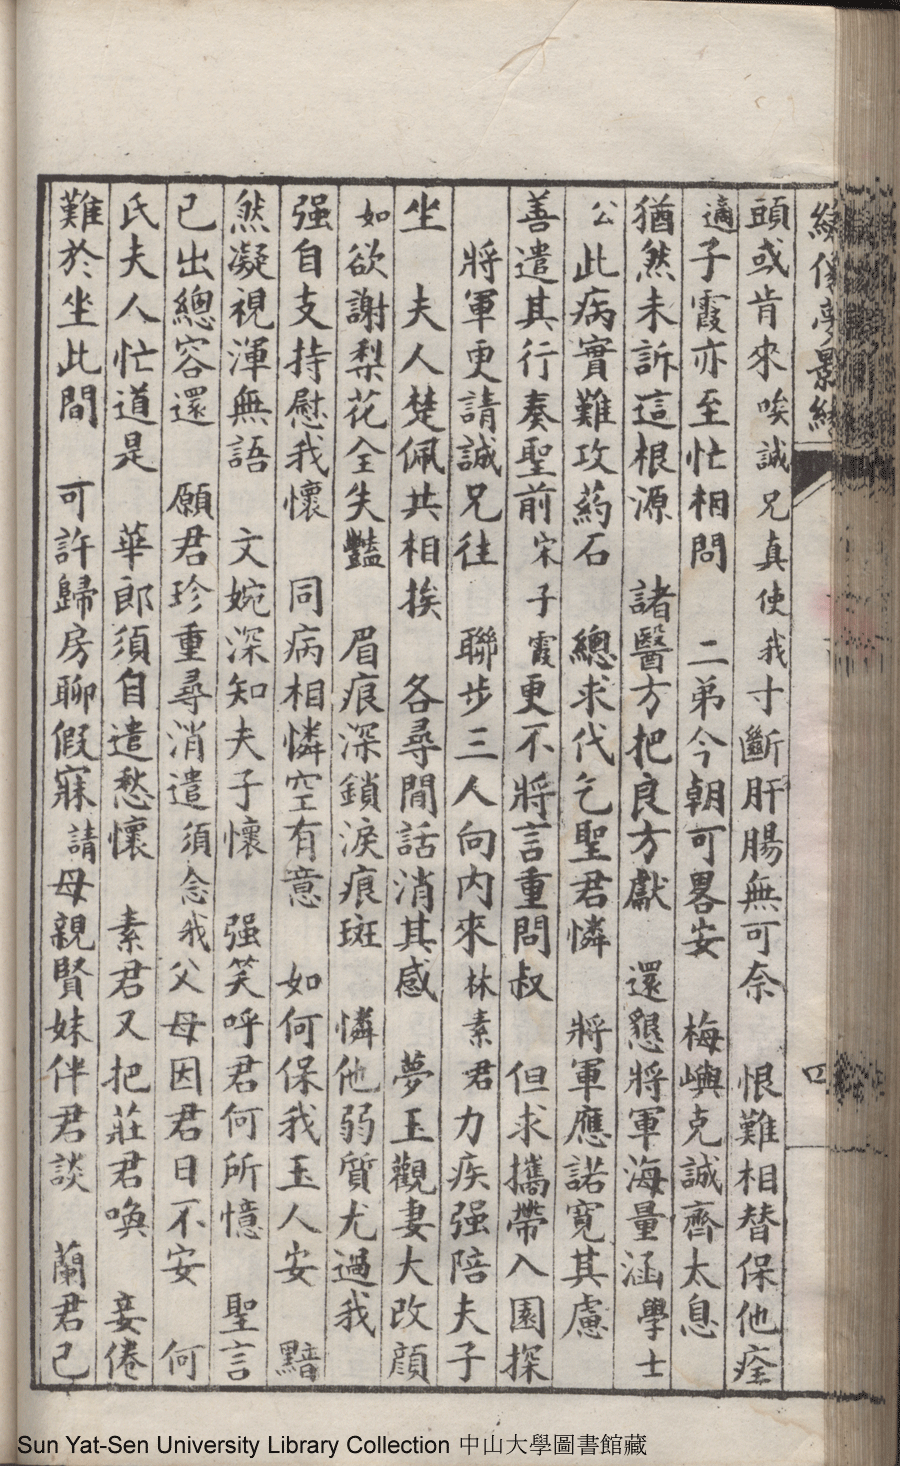 頭或肯來唉誠兄真使我寸斷肝腸無可奈 恨難相替保他痊
適子霞亦至忙相問 二弟今朝可畧安 梅嶼克誠齊太息
猶然未訴這根源 諸醫方把良方獻 還懇將軍海量涵學士
公此病實難攻药石 總求代乞聖君憐 將軍應諾寬其慮
善遣其行奏聖前宋子霞更不將言重問叔 但求攜帶入園探
將軍更請誠兄往 聯步三人向內來林素君力疾强陪夫子
坐 夫人楚佩共相挨 各尋閒話消其感 夢玉觀妻大改顔
如欲謝梨花全失豔 眉痕深鎖淚痕斑 憐他弱質尤過我
强自支持慰我懷 同病相憐空有意 如何保我玉人安 黯
然凝視渾無語 文婉深知夫子懷 强笑呼君何所憶 聖言
已出總容還 願君珍重尋消遣須念我父母因君日不安 何
氏夫人忙道是 華郎須自遣愁懷 素君又把莊君喚 妾倦
難於坐此間 可許歸房聊假寐請母親賢妹伴君談 蘭君已
四
Sun Yat-Sen University Library Collection 中山大學圖書館藏